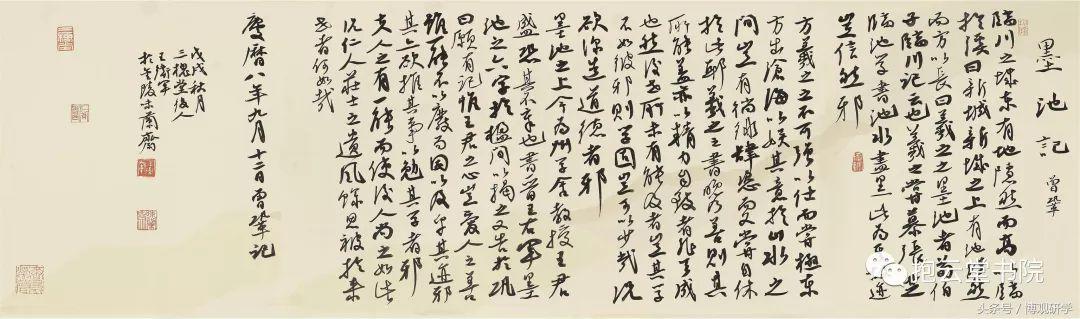 墨池記
曾鞏
臨川之城東有地隱然而高以臨
於溪曰新城新城之上有池窪然
而方以長曰羲之之墨池者荀伯
子臨川記云也羲之嘗慕張芝
臨池學書池水盡黑此為其故迹
豈信然邪
方羲之之不可強以仕而嘗極東
方出滄海以娛其意於山水之
間豈有徜徉肆恣而又嘗自休
於此邪羲之之書晚乃善則其
所能蓋亦以精力自致者非天成
也然後世所未有能及者豈其學
不如彼邪則學固豈可以少哉況
欲深造道德者邪
墨池之上今為州學舍教授王君
盛恐其不章也書晉王右軍墨
池之六字於楹間以揭之又告於鞏
曰願有記推王君之心豈愛人之善
雖一能不以廢而因以及乎其迹邪
其亦欲推其事以勉其學者邪
夫人之有一能而使後人尚之如此
況仁人莊士之遺風餘思被於來
世者何如哉
慶曆八年九月十二日曾鞏記
戊戌秋月
三槐堂後人
王濟軍
抱云堂书院
头条号 / 博观研学